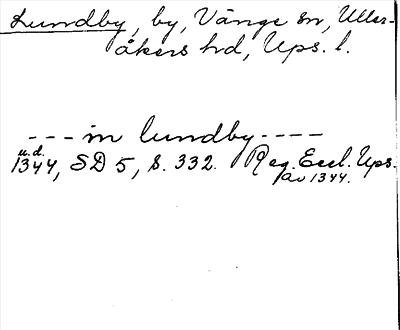 Lundby, by, Vänge sn, Uller-
åkers hd, Ups. l.
--- in lundby ----
u.d.
1344, SD 5, s. 332. Reg. Eccl. Ups.
av 1344.